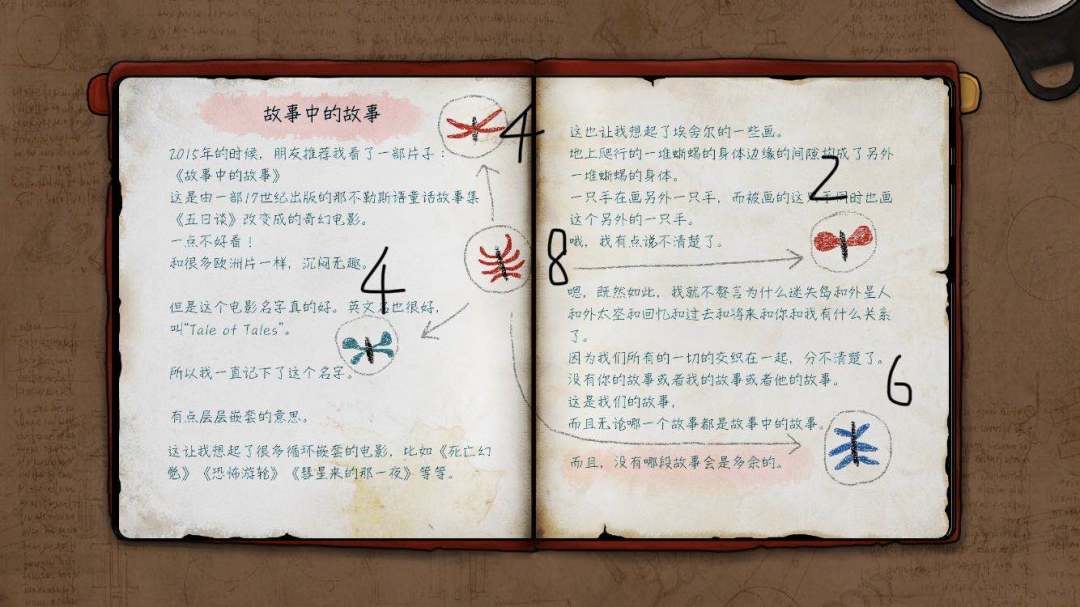 故事中的故事
2015年的时候，朋友推荐我看了一部片子：
《故事中的故事》
这是由一部17世纪出版的那不勒斯语童话故事集
《五日谈》改变成的奇幻电影。
一点不好看！
和很多欧洲片一样，沉闷无趣。
但是这个电影名字真的好。英文名也很好，
叫"Tale of Tales"。
所以我一直记下了这个名字。
有点层层嵌套的意思。
这让我想起了很多循环嵌套的电影，比如《死亡幻
觉》《恐怖游轮》《彗星来的那一夜》等等。
4
8
4
这也让我想起了埃舍尔的一些画。
地上爬行的一堆蜥蜴的身体边缘的间隙构成了另外
一堆蜥蜴的身体。
一只手在画另外一只手，而被画的这只手同时也画
这个另外的一只手。
哦，我有点说不清楚了。
嗯，既然如此，我就不赘言为什么迷失岛和外星人
和外太空和回忆和过去和将来和你和我有什么关系
了。
因为我们所有的一切的交织在一起，分不清楚了。
没有你的故事或者我的故事或者他的故事。
这是我们的故事，
而且无论哪一个故事都是故事中的故事。
而且，没有哪段故事会是多余的。
2
6